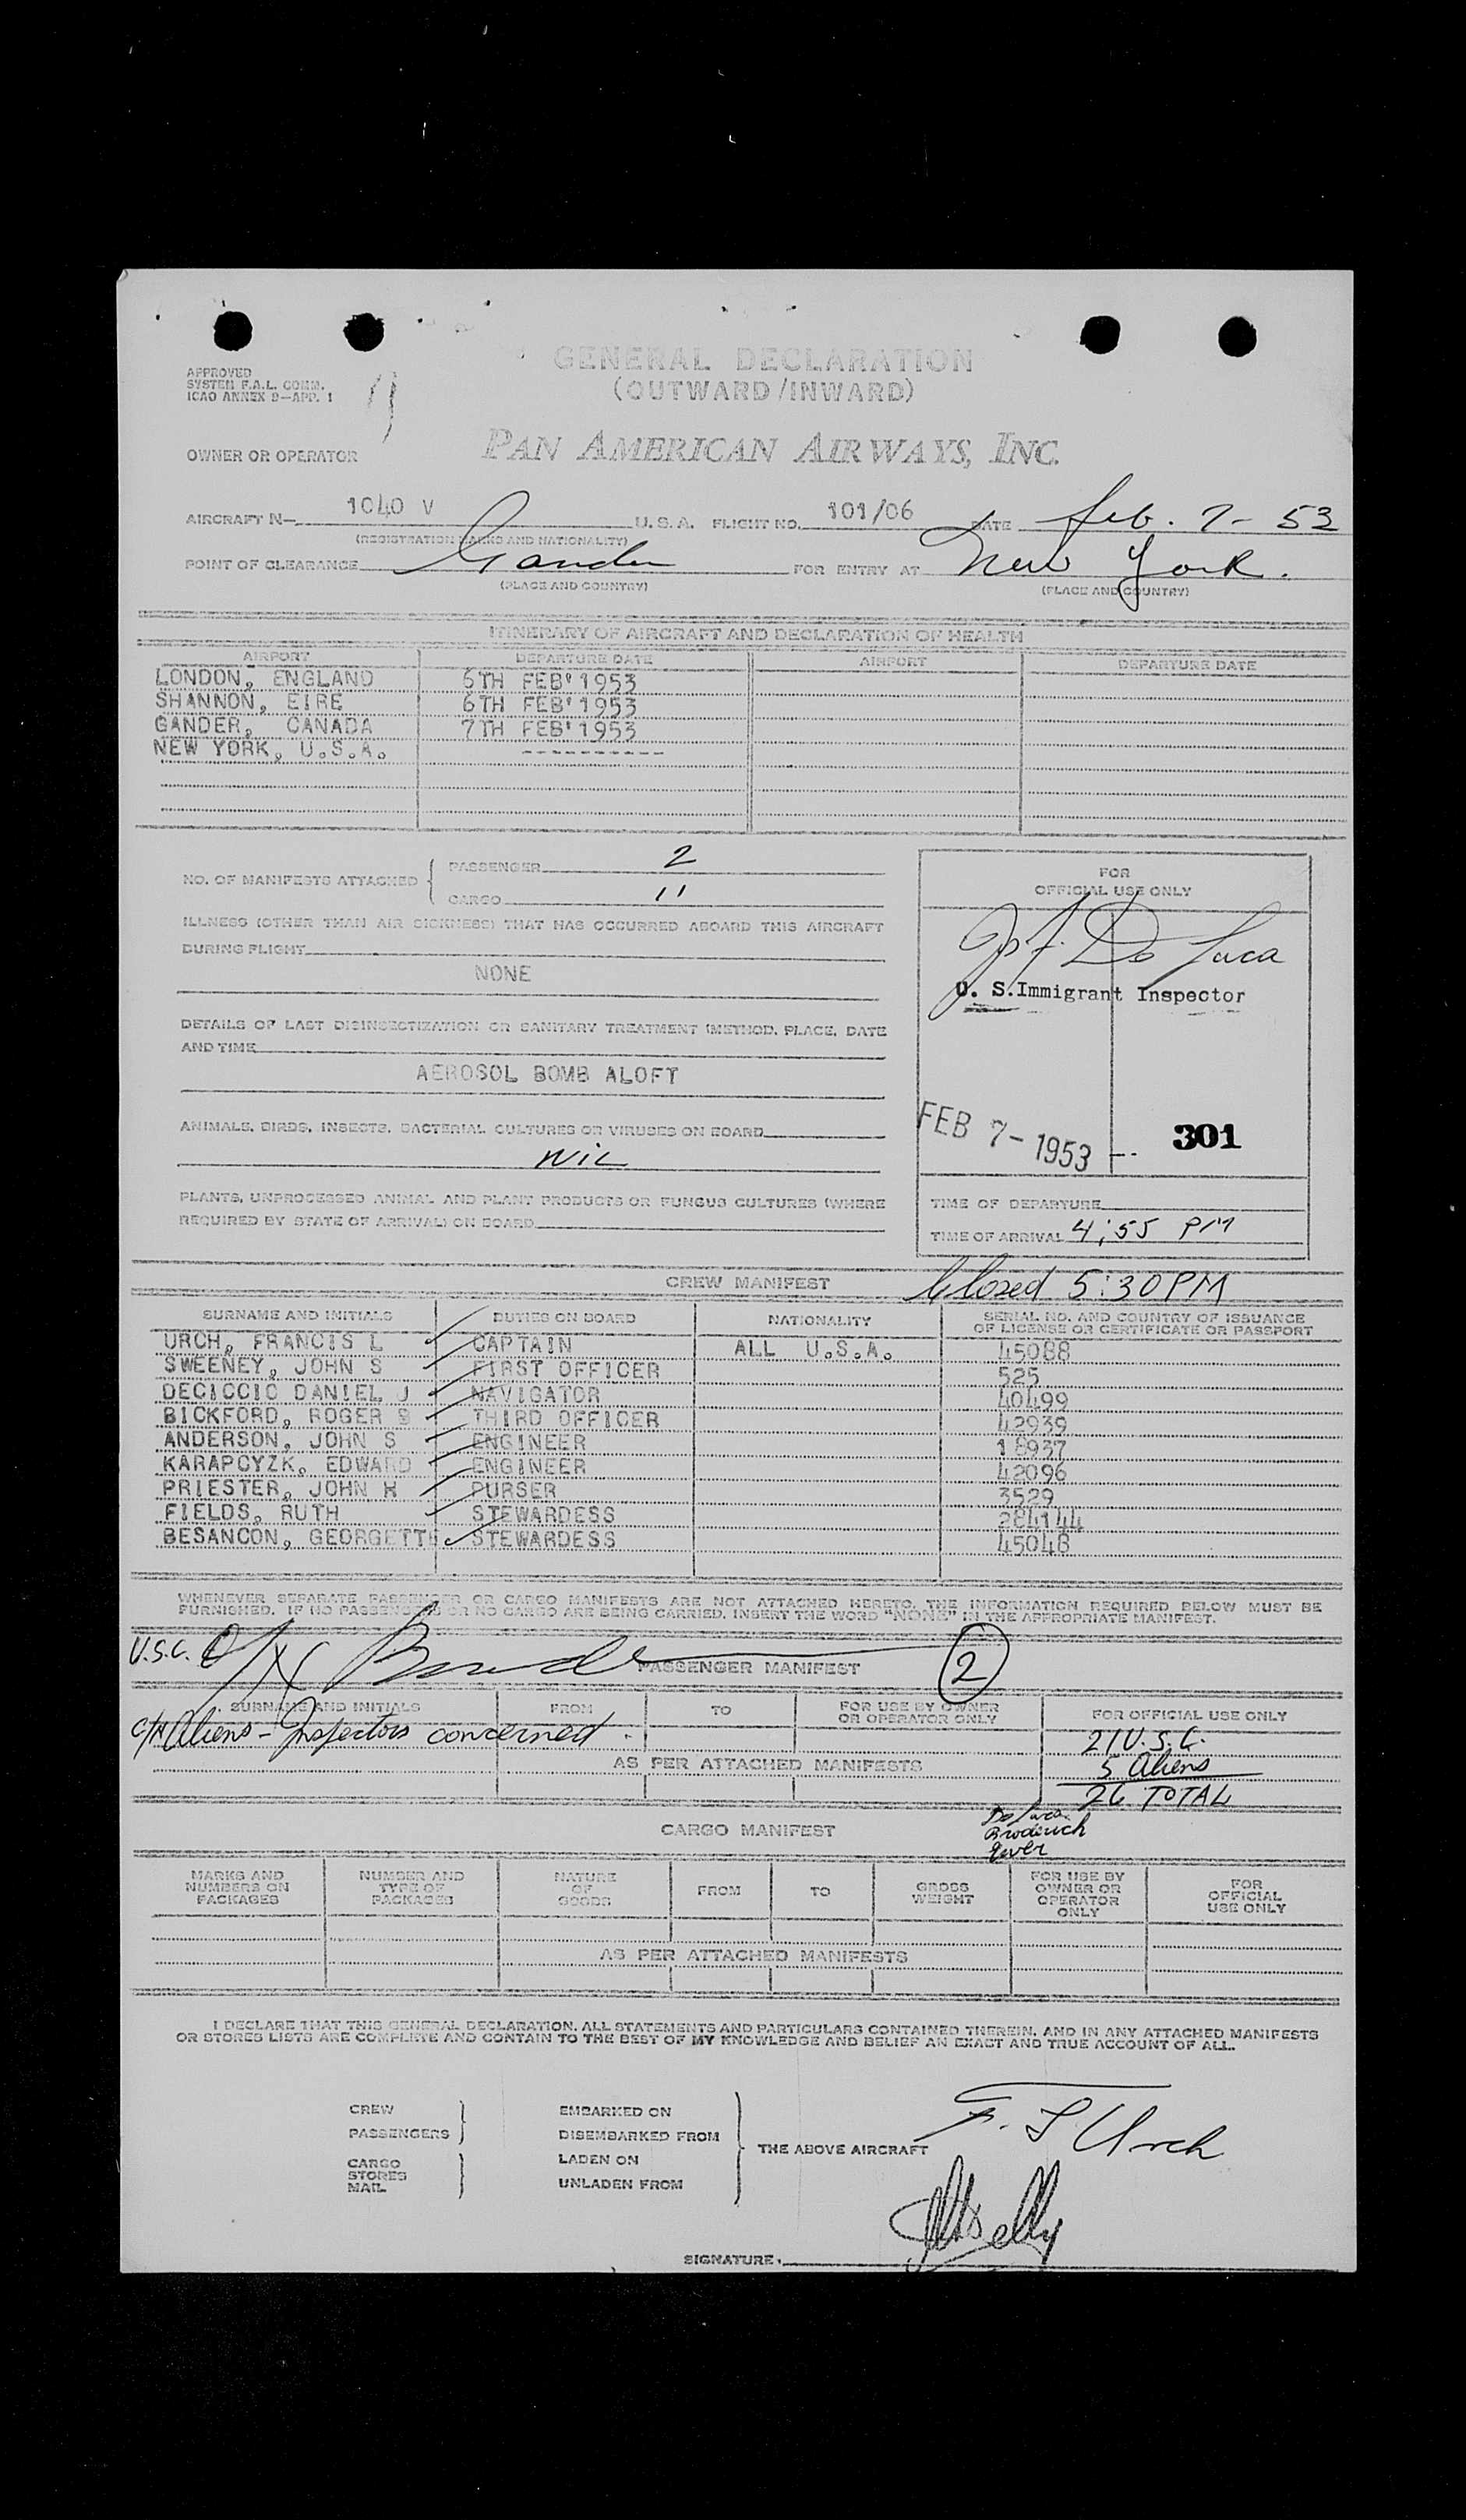 GENERAL DECLARATION
(OUTWARD/INWARD)
APPROVED
SYSTEM F.A.L. COMM.
ICAO ANNEX 9—APP. 1
OWNER OR OPERATOR PAN AMERICAN AIRWAYS, INC.
AIRCRAFT N— 1040 V U.S.A. FLIGHT NO. 101/06 DATE Feb. 7- 53
(REGISTRATION MARKS AND NATIONALITY)
POINT OF CLEARANCE Gander FOR ENTRY AT New York.
(PLACE AND COUNTRY) (PLACE AND COUNTRY)
ITINERARY OF AIRCRAFT AND DECLARATION OF HEALTH
AIRPORT DEPARTURE DATE AIRPORT DEPARTURE DATE
LONDON, ENGLAND 6TH FEB'1953
SHANNON, EIRE 6TH FEB'1953
GANDER, CANADA 7TH FEB'1953
NEW YORK, U.S.A. ----------
NO. OF MANIFESTS ATTACHED { PASSENGER 2
CARGO 11
ILLNESS (OTHER THAN AIR SICKNESS) THAT HAS OCCURRED ABOARD THIS AIRCRAFT
DURING FLIGHT
NONE
DETAILS OF LAST DISINSECTIZATION OR SANITARY TREATMENT (METHOD, PLACE, DATE
AND TIME
AEROSOL BOMB ALOFT
ANIMALS, BIRDS, INSECTS, BACTERIAL CULTURES OR VIRUSES ON BOARD
NIL
PLANTS, UNPROCESSED ANIMAL AND PLANT PRODUCTS OR FUNGUS CULTURES (WHERE
REQUIRED BY STATE OF ARRIVAL) ON BOARD
FOR
OFFICIAL USE ONLY
De Luca
U. S. Immigrant Inspector
FEB 7- 1953 -- 301
TIME OF DEPARTURE
TIME OF ARRIVAL 4:55 PM
CREW MANIFEST Closed 5:30 PM
SURNAME AND INITIALS DUTIES ON BOARD NATIONALITY SERIAL NO. AND COUNTRY OF ISSUANCE
OF LICENSE OR CERTIFICATE OR PASSPORT
URCH, FRANCIS L CAPTAIN ALL U.S.A. 45088
SWEENEY, JOHN S FIRST OFFICER 525
DECICCIO DANIEL J NAVIGATOR 40499
BICKFORD, ROGER THIRD OFFICER 42939
ANDERSON, JOHN S ENGINEER 18937
KARAPCYZK, EDWARD ENGINEER 42096
PRIESTER, JOHN H PURSER 3529
FIELDS, RUTH STEWARDESS 284144
BESANCON, GEORGETTE STEWARDESS 45048
WHENEVER SEPARATE PASSENGER OR CARGO MANIFESTS ARE NOT ATTACHED HERETO, THE INFORMATION REQUIRED BELOW MUST BE
FURNISHED. IF NO PASSENGERS OR NO CARGO ARE BEING CARRIED, INSERT THE WORD "NONE" IN THE APPROPRIATE MANIFEST.
U.S.C.
PASSENGER MANIFEST 2
SURNAME AND INITIALS FROM TO FOR USE BY OWNER
OR OPERATOR ONLY FOR OFFICIAL USE ONLY
Aliens - Inspectors concerned. 21 U.S.C.
AS PER ATTACHED MANIFESTS 5 Aliens
26 TOTAL
CARGO MANIFEST
De Luca
Broderick
MARKS AND
NUMBERS ON
PACKAGES NUMBER AND
TYPE OF
PACKAGES NATURE
OF
GOODS FROM TO GROSS
WEIGHT FOR USE BY
OWNER OR
OPERATOR
ONLY FOR
OFFICIAL
USE ONLY
AS PER ATTACHED MANIFESTS
I DECLARE THAT THIS GENERAL DECLARATION, ALL STATEMENTS AND PARTICULARS CONTAINED THEREIN, AND IN ANY ATTACHED MANIFESTS
OR STORES LISTS ARE COMPLETE AND CONTAIN TO THE BEST OF MY KNOWLEDGE AND BELIEF AN EXACT AND TRUE ACCOUNT OF ALL.
CREW
PASSENGERS
CARGO
STORES
MAIL
EMBARKED ON
DISEMBARKED FROM
LADEN ON
UNLADEN FROM
THE ABOVE AIRCRAFT
F. L Urch
SIGNATURE,